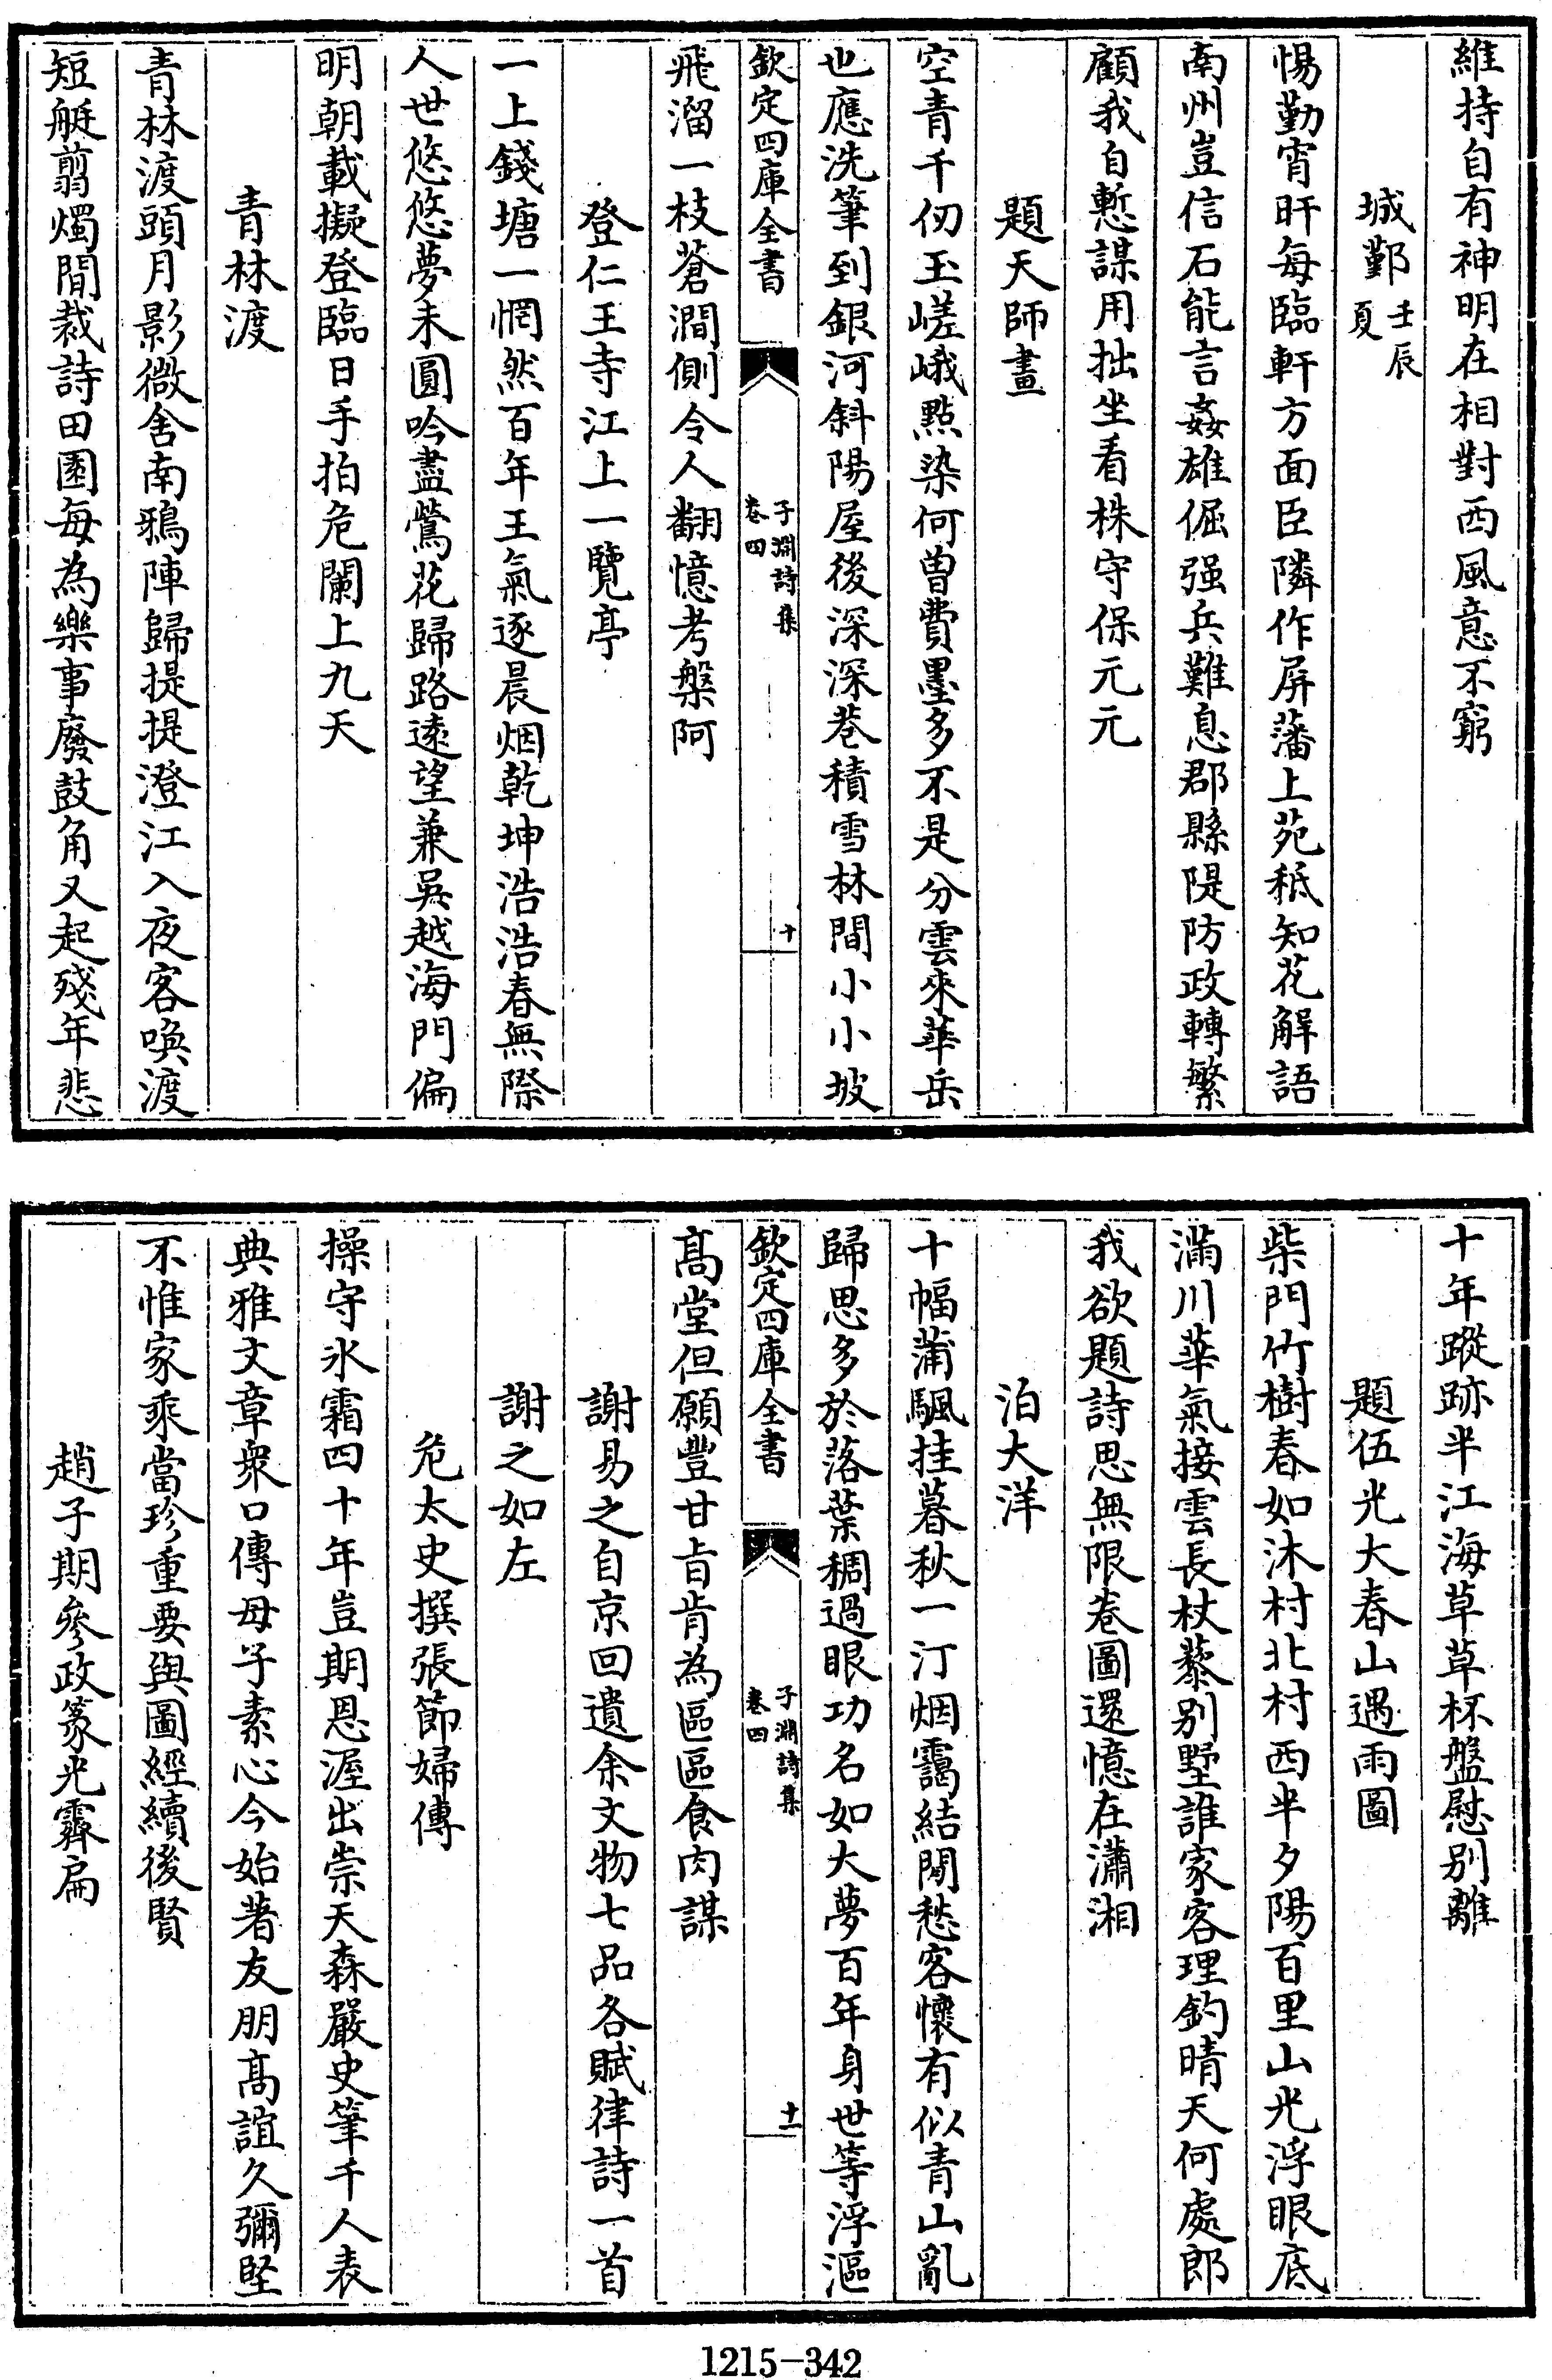 維持自有神明在相對西風意不窮
城鄞壬辰夏
惕勤宵旰每臨軒方面臣隣作屏藩上苑秖知花解語
南州豈信石能言姦雄倔强兵難息郡縣隄防政轉繁
顧我自慙謀用拙坐看株守保元元
題天師畫
空青千仞玉嵯峨點染何曾費墨多不是分雲來華岳
也應洗筆到銀河斜陽屋後深深巷積雪林間小小坡
欽定四庫全書
子淵詩集
卷四
十
飛溜一枝蒼澗側令人翻憶考槃阿
登仁王寺江上一覽亭
一上錢塘一惘然百年王氣逐晨烟乾坤浩浩春無際
人世悠悠夢未圓吟盡鶯花歸路遠望兼吳越海門偏
明朝載擬登臨日手拍危闌上九天
青林渡
青林渡頭月影微舍南鴉陣歸提提澄江入夜客喚渡
短艇翦燭間裁詩田園每為樂事廢鼓角又起殘年悲
十年蹤跡半江海草草杯盤慰別離
題伍光大春山遇雨圖
柴門竹樹春如沐村北村西半夕陽百里山光浮眼底
滿川華氣接雲長杖藜別墅誰家客理釣晴天何處郎
我欲題詩思無限卷圖還憶在瀟湘
泊大洋
十幅蒲颿挂暮秋一汀烟靄結閒愁客懷有似青山亂
歸思多於落葉稠過眼功名如大夢百年身世等浮漚
欽定四庫全書
子淵詩集
卷四
十一
高堂但願豐甘旨肯為區區食肉謀
謝易之自京回遺余文物七品各賦律詩一首
謝之如左
危太史撰張節婦傳
操守氷霜四十年豈期恩渥出崇天森嚴史筆千人表
典雅文章衆口傳母子素心今始著友朋高誼久彌堅
不惟家乘當珍重要與圖經續後賢
趙子期參政篆光霽扁
1215-342